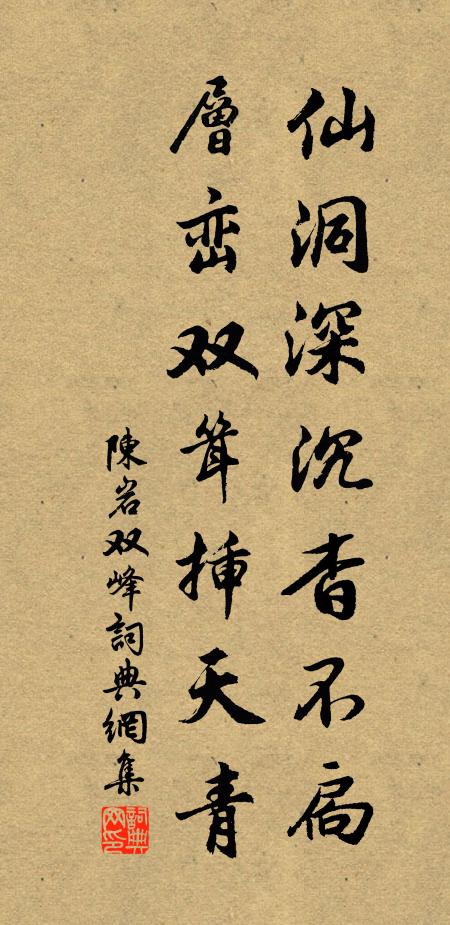 仙洞深沉杳不扃
層峦双耸揷天青
陳岩双峰詞典網集
詞典网印